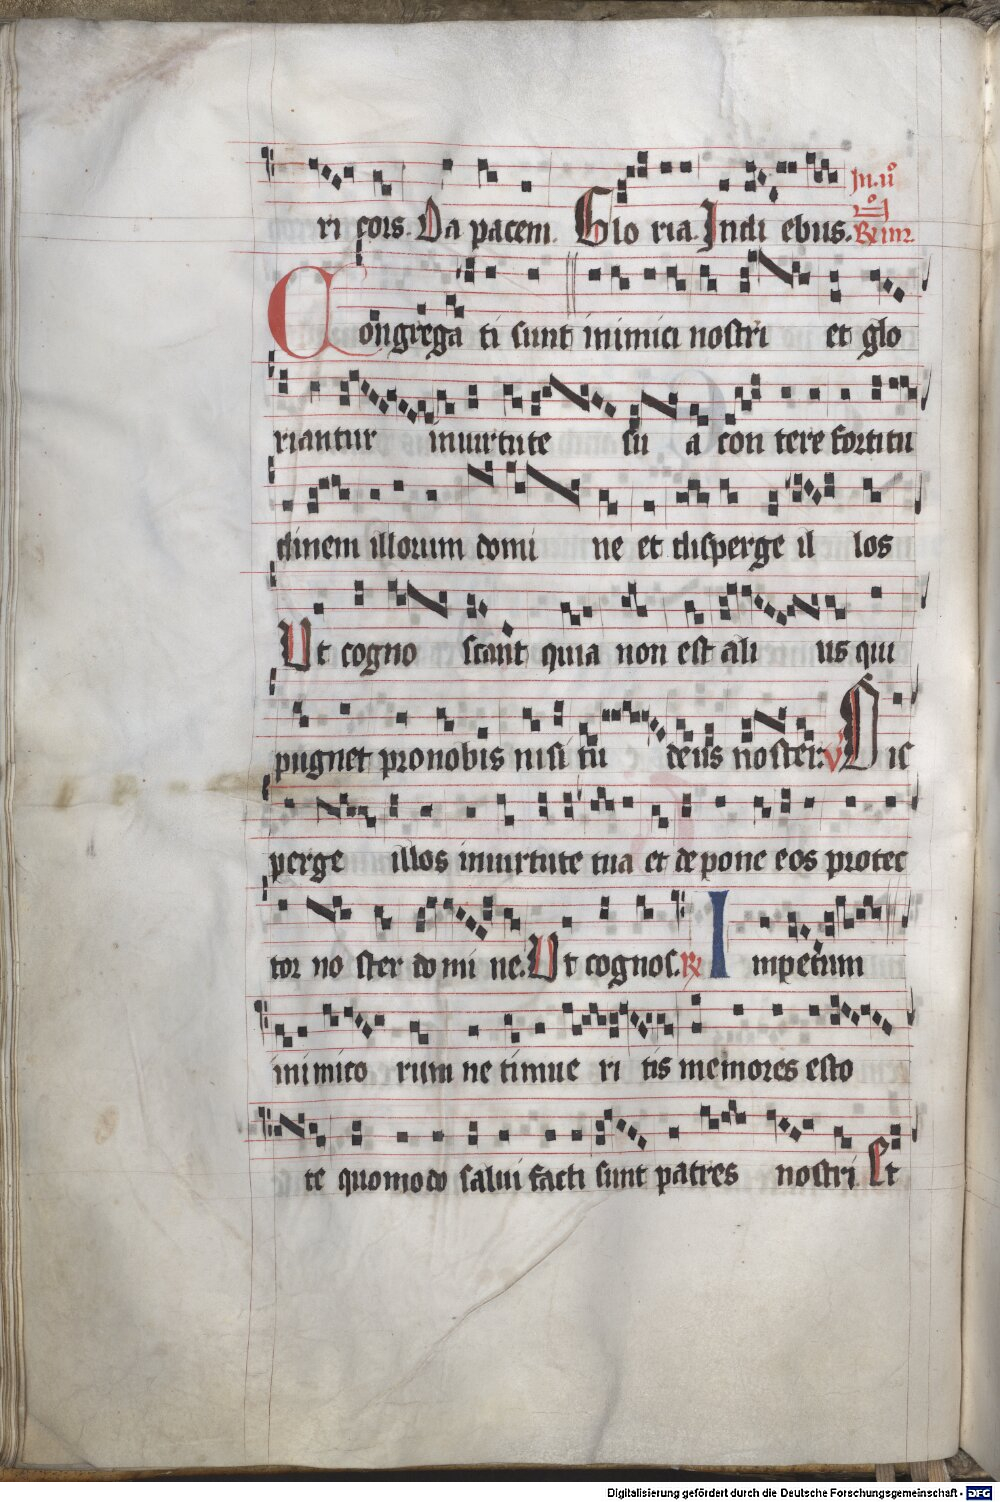 ri cors. Da pacem. Glo ria. In di ebus. In. ii°
Congrega ti sunt inimici nostri et glo
riantur inuirtute su a con tere fortitu
dinem illorum domi ne et disperge il los
Ut cogno scant quia non est ali us qui
pugnet pro nobis nisi tu deus noster. V Dis
perge illos inuirtute tua et depone eos protec
tor no ster do mi ne. Ut cognos. R Impetum
inimico rum ne timue ri tis memores esto
te quomodo salui facti sunt patres nostri. Et
Digitalisierung gefördert durch die Deutsche Forschungsgemeinschaft - DFG